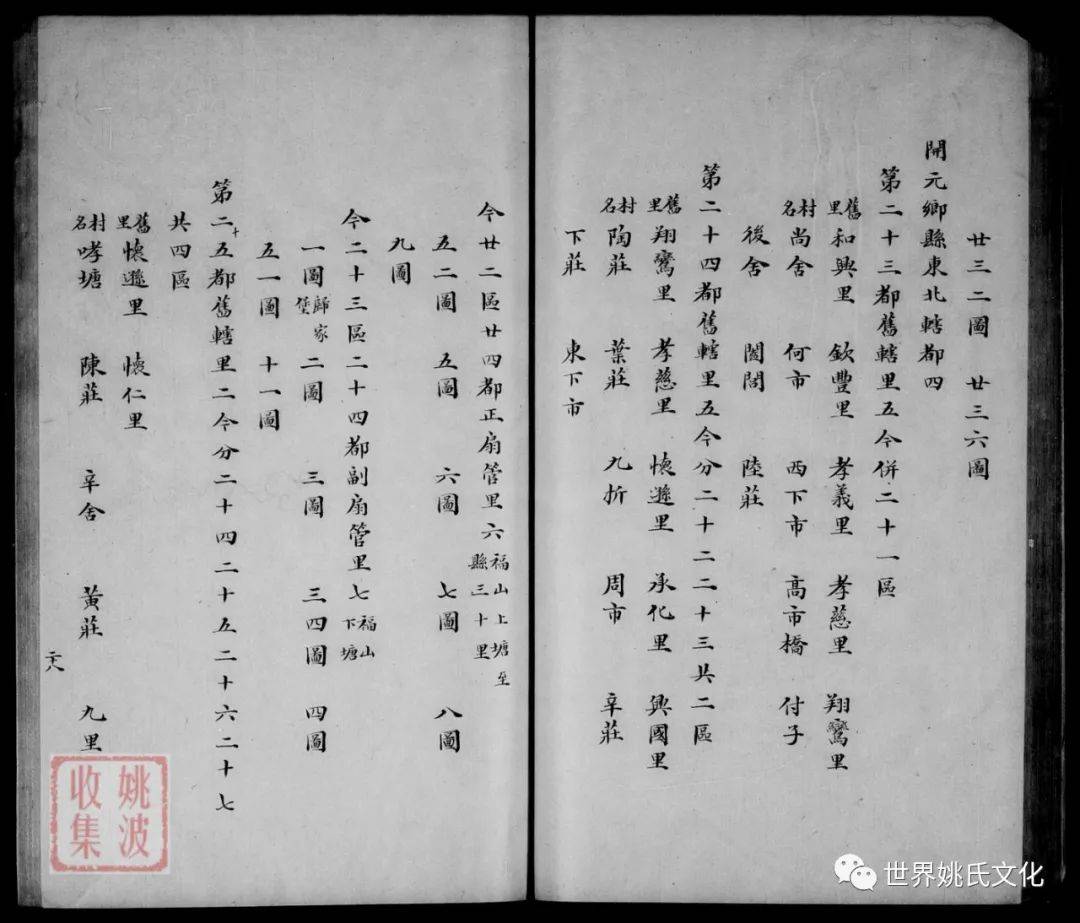 廿三二圖 廿三六圖
開元鄉縣東北轄都四
第二十三都舊轄里五今併二十一區
舊里 和興里 欽豐里 孝義里 孝慈里 翔鸞里
村名 尚舍 何市 西下市 高市橋 付子
後舍 閶閭 陸莊
第二十四都舊轄里五今分二十二二十三共二區
舊里 翔鸞里 孝慈里 懷遜里 承化里 興國里
村名 陶莊 葉莊 九折 周市 辛莊
下莊 東下市
今廿二區廿四都正扇管里六 福山上塘至縣三十里
五二圖 五圖 六圖 七圖 八圖
九圖
今二十三區二十四都副扇管里七 福山下塘
一圖 歸家堡 二圖 三圖 三四圖 四圖
五一圖 十一圖
第二十五都舊轄里二今分二十四二十五二十六二十七
共四區
舊里 懷遜里 懷仁里
村名 哮塘 陳莊 辛舍 黃莊 九里
姚波收集
世界姚氏文化